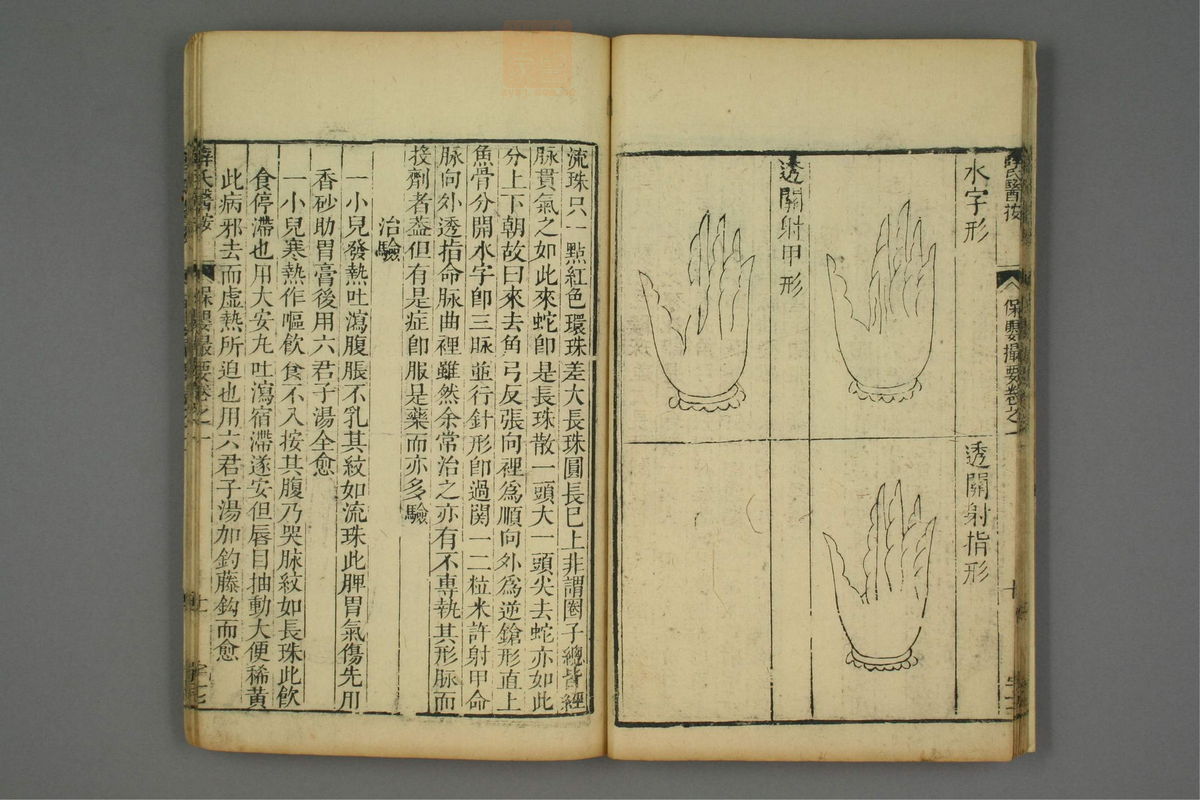 水字形
透關射指形
透關射甲形
保嬰撮要卷之一
流珠只一點紅色環珠差大長珠圓長已上非謂圈子總皆經
脉貫氣之如此來蛇卽是長珠散一頭大一頭尖去蛇亦如此
分上下朝故曰來去角弓反張向裡爲順向外爲逆鎗形直上
魚骨分開水字卽三脉並行針形卽過関一二粒米許射甲命
脉向外透指命脉曲裡雖然余常治之亦有不專執其形脉而
投劑者葢但有是症卽服是藥而亦多驗
治驗
一小兒發熱吐瀉腹脹不乳其紋如流珠此脾胃氣傷先用
香砂助胃膏後用六君子湯全愈
一小兒寒熱作嘔飲食不入按其腹乃哭脉紋如長珠此飲
食停滯也用大安丸吐瀉宿滯遂安但唇目抽動大便稀黃
此病邪去而虛熱所迫也用六君子湯加釣藤鈎而愈
薛氏醫按
保嬰撮要卷之一